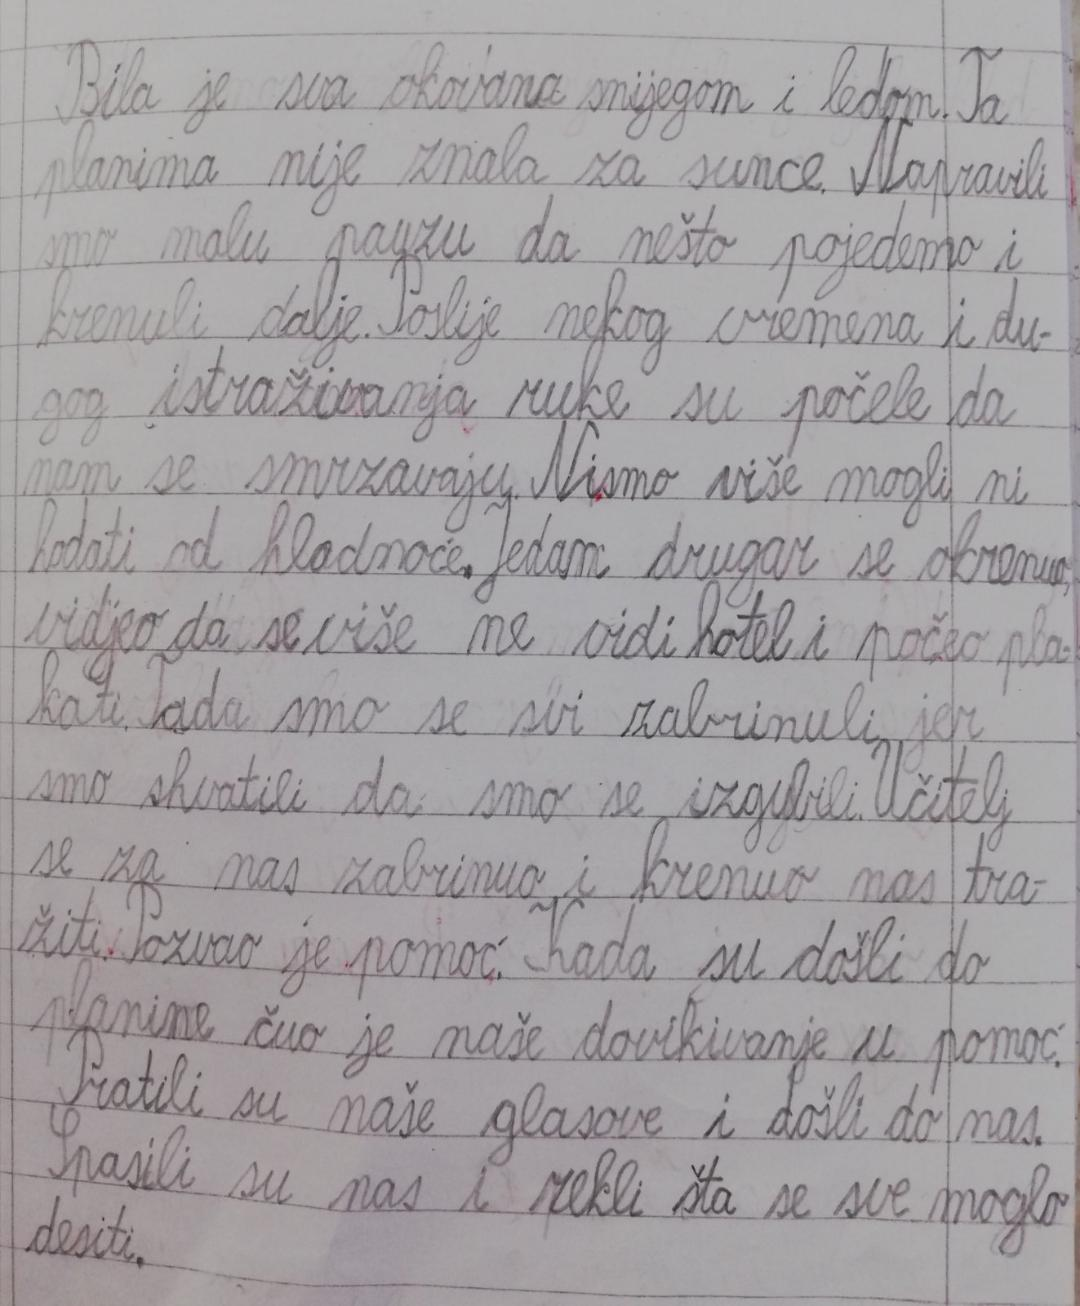 Bila je sva okovana snijegom i ledom. Ta
planima nije znala za sunce. Napravili
smo malu pauzu da nešto pojedemo i
krenuli dalje. Poslije nekog vremena i du-
gog istraživanja ruke su počele da
nam se smrzavaju. Nismo više mogli ni
hodati od hladnoće. Jedam drugar se okrenuo,
vidjeo da se više ne vidi hotel i počeo pla-
kati. Tada smo se svi zabrinuli jer
smo shvatili da smo se izgubili. Učitelj
se za nas zabrinuo i krenuo nas tra-
žiti. Pozvao je pomoć. Kada su došli do
planine čuo je naše dovikivanje u pomoć.
Pratili su naše glasove i došli do nas.
Spasili su nas i rekli šta se sve moglo
desiti.